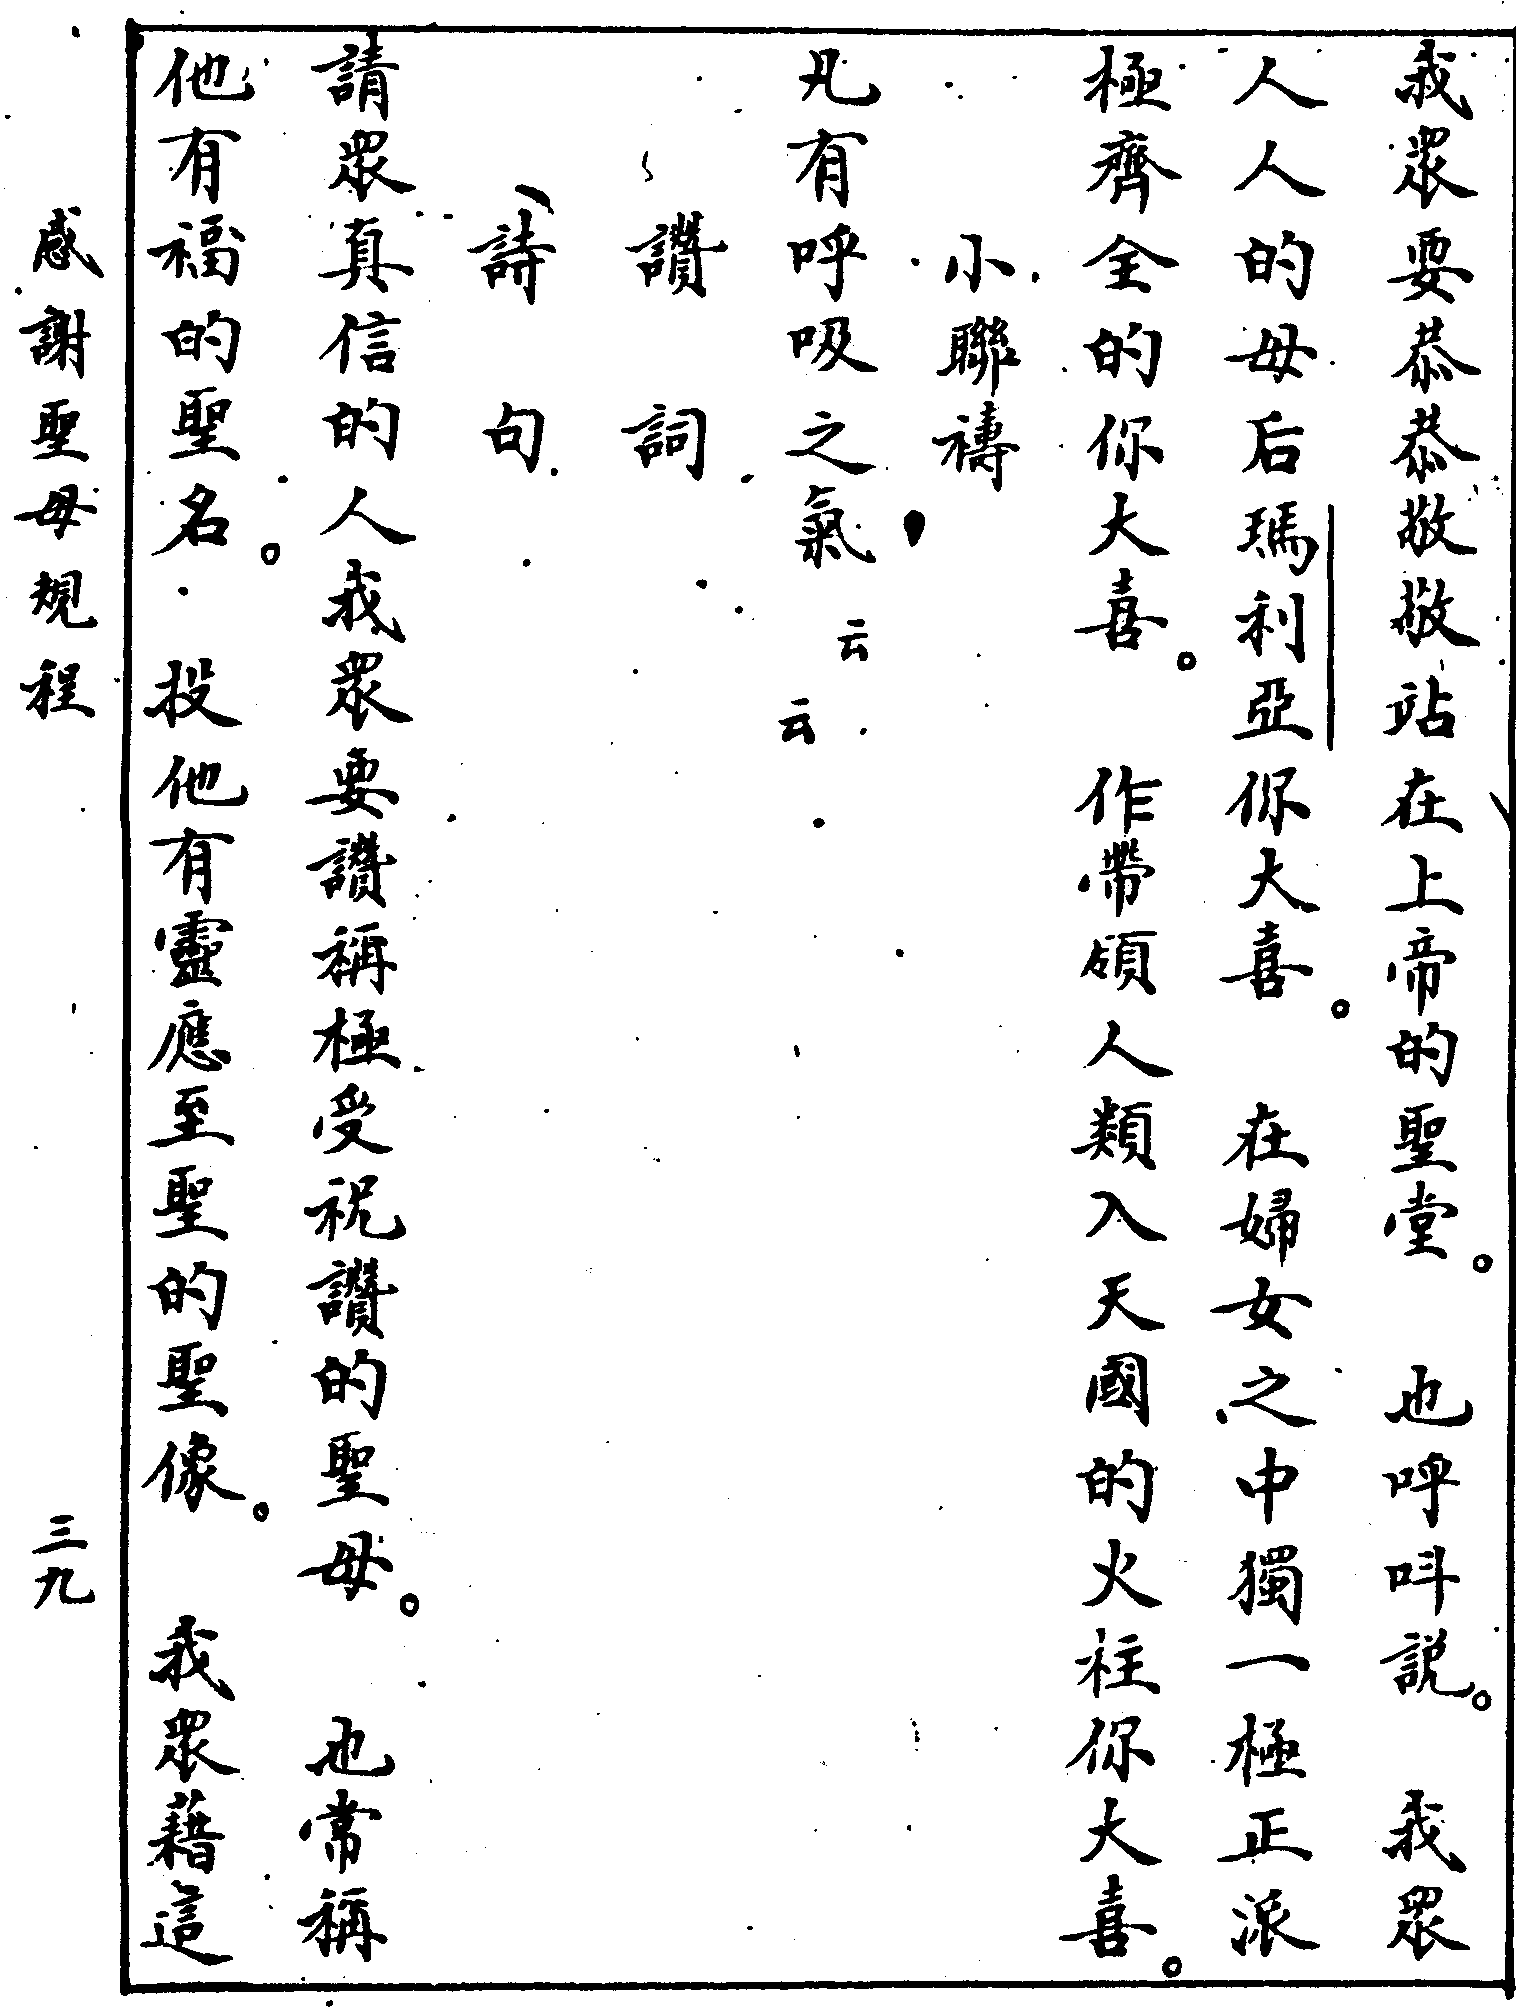 我眾要恭恭敬敬站在上帝的聖堂。　也呼呌說。　我眾
人人的母后瑪利亞你大喜。　在婦女之中獨一極正派
極齊全的你大喜。　作帶領人類入天國的火柱你大喜。
小聯禱
凡有呼吸之氣云云
讚詞
詩句
請眾真信的人我眾要讚稱極受祝讚的聖母。　也常稱
他有福的聖名。　投他有靈應至聖的聖像。　我眾藉這
感謝聖母規程
三九